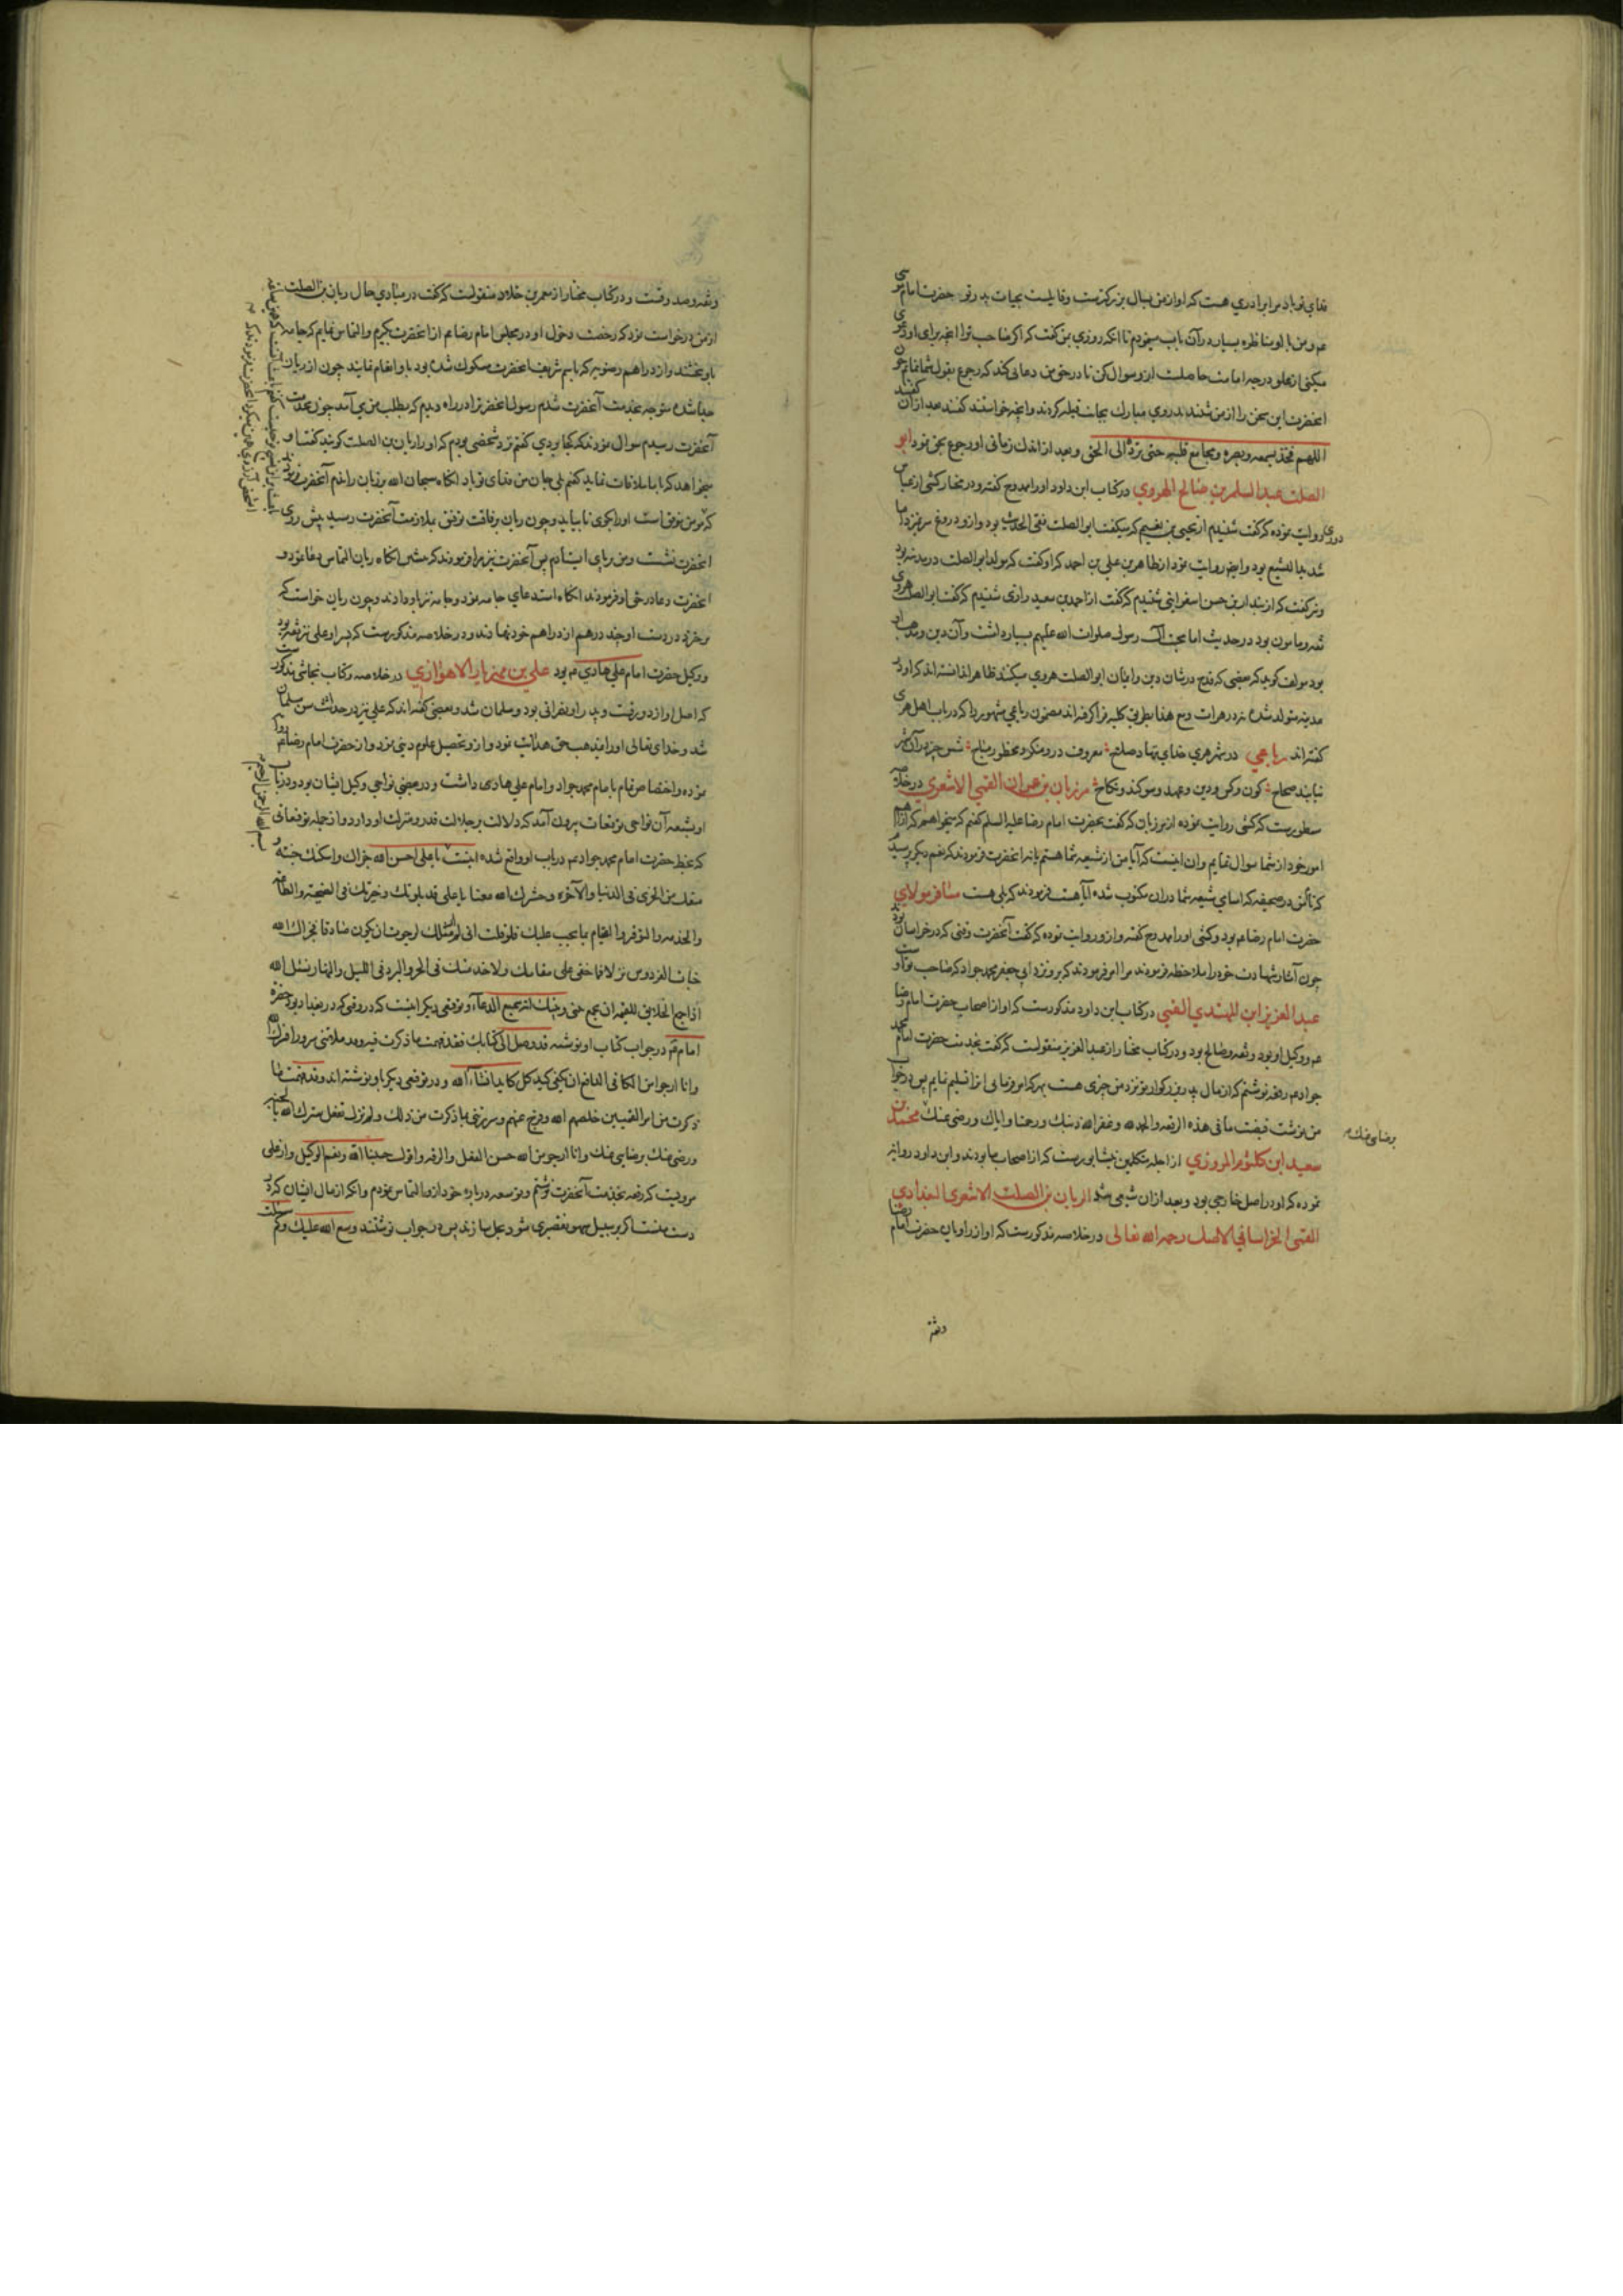 فدای تو باد مرا برادری هست که او از من بسال بزرگترست و قایلست بحیات پدر تو حضرت امام موسی
عم و من با او مناظره بسیار در آن باب مینمودم تا آنکه روزی بمن گفت که اگر صاحب ترا آنچه برای او دعوی
میکنی از علو درجه امامت حاصلست ازو سوال کن تا در حق من دعائی کند که رجوع بقول شما نمایم چون
آنحضرت این سخن را از من شنیدند روی مبارک بجانب قبله کردند و آنچه خواستند گفتند بعد از آن گفتند
اللهم فخذ بسمعه و بصره و مجامع قلبه حتی تردّه الی الحق و بعد از اندک زمانی او رجوع بحق نمود ابو
الصلت عبد السلم بن صالح الهروی در کتاب ابن داود او را ممدوح گفته و در مختار کشی از عباس
دوری روایت نموده که گفت شنیدم از یحیی بن نعیم که میگفت ابو الصلت نقی الحدیث بود و ازو دروغ سر نمیزد اما
شدید التشیع بود و ایضا روایت نمود از طاهر بن علی بن احمد که او گفت که مولد ابو الصلت در مدینه بود
و نیز گفت که از بندار بن حسن اسفراینی شنیدم که گفت از احمد بن سعید رازی شنیدم که گفت ابو الصلت هروی
ثقه و مامون بود در حدیث اما محب آل رسول صلوات الله علیهم بسیار داشت و آن دین و مذهب او
بود مولف گوید که بعضی که قدح در شان دین و ایمان ابو الصلت هروی میکنند ظاهرا ندانسته اند که او در
مدینه متولد شده نه در هرات و مع هذا بطریق کلیه فرا گرفته اند مضمون رباعی مشهور را که در باب اهل هری
گفته اند رباعی در شهر هری خدای بنهاد صلح معروف درو منکر و محظور مباح شش چیز در آن شهر
نیابند صحاح کون و کس و دین و عهد و سوگند و نکاح مرزبان بن عمران القمی الاشعری در خلاصه
مسطورست که کشی روایت نموده از مرزبان که گفت بحضرت امام رضا علیه السلم گفتم که میخواهم که از اهم
امور خود از شما سوال نمایم و آن اینست که آیا من از شیعه شما هستم یا نه آنحضرت فرمودند که نعم دیگر پرسیدم
که نام من در صحیفه که اسامی شیعه شما در آن مکتوب شده آیا هست فرمودند که بلی هست مسافر مولای
حضرت امام رضا عم بود و کشی او را ممدوح گفته و ازو روایت نموده که گفت آنحضرت وقتی که در خراسان بودند
چون آثار شهادت خود را ملاحظه فرمودند مرا امر فرمودند که برو نزد ابی جعفر محمد جواد که صاحب تو اوست
عبد العزیز ابن المهتدی القمی در کتاب ابن داود مذکورست که او از اصحاب حضرت امام رضا
عم و وکیل او بود و ثقه و صالح بود و در کتاب مختار از عبد العزیز منقولست که گفت بخدمت حضرت امام محمد
جواد عم رقعه نوشتم که از مال پدر بزرگوار تو نزد من چیزی هست بهر که امر فرمائی آنرا تسلیم نمایم پس در جواب
من نوشت قبضت ما فی هذه الرقعه و الحمد لله و غفر الله ذنبک و رحمنا و ایاک و رضی عنک محمد بن
برضای عنک
سعید ابن کلثوم المروزی از اجله متکلمین نیشابورست که از اصحاب ما بودند و ابن داود روایت
نموده که او در اصل خارجی بود و بعد از آن شیعی شد الریان بن الصلت الاشعری البغدادی
القمی الخراسانی الاصل رحمه الله تعالی در خلاصه مذکورست که او از راویان حضرت امام رضا
وثقه
و ثقه و صدوقست و در کتاب مختار از معمر بن خلاد منقولست که گفت در مبادی حال ریان بن الصلت
از من درخواست نمود که رخصت دخول او در مجلس امام رضا عم از آنحضرت بگیرم و التماس نمایم که جامه
باو بخشند و از دراهم رضویه که باسم شریف آنحضرت مسکوک شده بود باو انعام نمایند چون از ریان
جدا شده متوجه خدمت آنحضرت شدم رسول آنحضرترا در راه دیدم که بطلب من می آمد چون بخدمت
آنحضرت رسیدم سوال نمودند که کجا بودی گفتم نزد شخصی بودم که او را ریان بن الصلت گویند گفتند او
میخواهد که با ما ملاقات نماید گفتم بلی جان من فدای تو باد آنگاه سبحان الله بر زبان راندم آنحضرت فرمودند
که مومن موفق است او را بگوی تا بیاید و چون ریان برفاقت توفیق بملازمت آنحضرت رسید پیش روی
آنحضرت نشست و من بر پای ایستادم پس آنحضرت نیز مرا فرمودند که بنشین آنگاه ریان التماس دعا نمود و
آنحضرت دعا در حق او فرمودند آنگاه استدعای جامه نمود و جامه نیز باو دادند و چون ریان خواست که
برخیزد در دست او چند درهم از دراهم خود نهادند و در خلاصه مذکورست که پسر او علی نیز ثقه بود
و وکیل حضرت امام علی هادی عم بود علی بن مهزیار الاهوازی در خلاصه و کتاب نجاشی مذکورست
که اصل او از دورقست و پدر او نصرانی بود و مسلمان شد و بعضی گفته اند که علی نیز در حداثت سن مسلمان
شد و خدای تعالی او را بمذهب حق هدایت نمود و ازو تحصیل علوم دینی نمود و از حضرت امام رضا عم روایت
نموده و اختصاص تمام با امام محمد جواد و امام علی هادی داشت و در بعضی نواحی وکیل ایشان بود و در باب
او بشیعه آن نواحی توقیعات بیرون آمد که دلالت بر جلالت قدر و منزلت او دارد و از جمله توقیعاتی
که بخط حضرت امام محمد جواد عم در باب او واقع شده اینست یا علی احسن الله جزاک و اسکنک جنته و
بسم الله الرحمن الرحیم
منعک من الخزی فی الدنیا و الآخره و حشرک الله معنا یا علی قد بلوتک و خیرتک فی النصیحه و الطاعه
و الخدمه و التوقیر و القیام بما یجب علیک فلو قلت انی لم ار مثلک لرجوت ان یکون صادقا فجزاک الله
جنات الفردوس نزلا فما خفی علی مقامک و لا خدمتک فی الحر و البرد فی اللیل و النهار نسئل الله
اذا جمع الخلایق للقیمه ان یجمع حتی و ربنک انه سمیع الدعاء و توقیع دیگر اینست که در وقتی که در بغداد بود حضرت
امام عم در جواب کتاب او نوشته قد وصل الی کتابک فقد فهمت ما ذکرت فیه و ملاتنی سرورا فسرک الله
و انا ارجو من الکافی الدافع ان یکفی کید کل کاید انشاءالله و در توقیعی دیگر باو نوشته اند و قد فهمت ما
ذکرت من امر القمیین خلصهم الله و فرّج عنهم و سررتنی بما ذکرت من ذلک و لم تزل تفعل سرک الله بالجنه
و رضی عنک برضایی عنک و انا ارجو من الله حسن الفضل و الرافه و اقول حسبنا الله و نعم الوکیل و از علی
مرویست که رقعه بخدمت آنحضرت نوشتم و توسعه در باره خود ازو التماس نمودم و آنکه از مال ایشان که در
دست منست اگر بر سبیل سهو تقصیری شود بحل سازند پس در جواب نوشتند وسع الله علیک و لمن سالت